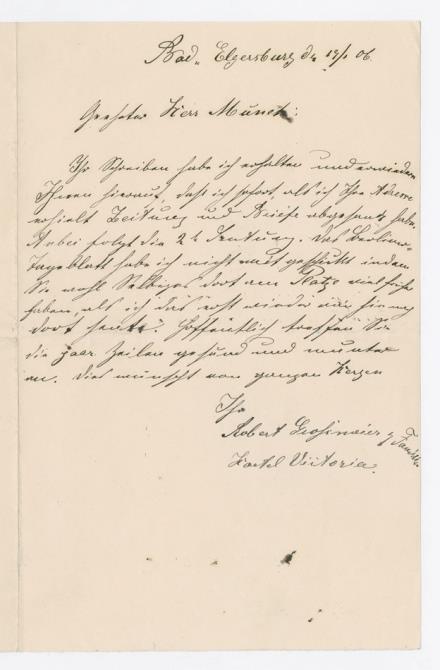 Bad Elgersburg d. 19/1 06.
Geehrter Herr Munch:
Ihr Schreiben habe ich erhalten und erwiedere
Ihnen hierauf, daß ich sofort, als ich Ihre Adresse
erhielt Zeitung und Briefe abgesandt habe.
Anbei folgt die 2te Sendung. Das Berliner-
Tageblatt habe ich nicht mit geschickt indem
Sie wohl Selbiges dort am Platze viel früher
haben, als ich das erst wieder von hier nach
dort sende. Hoffentlich treffen Sie
die paar Zeilen gesund und munter
an. Dies wünscht von ganzen Herzen
Ihr
Robert u. Familie
Hotel Viktoria.